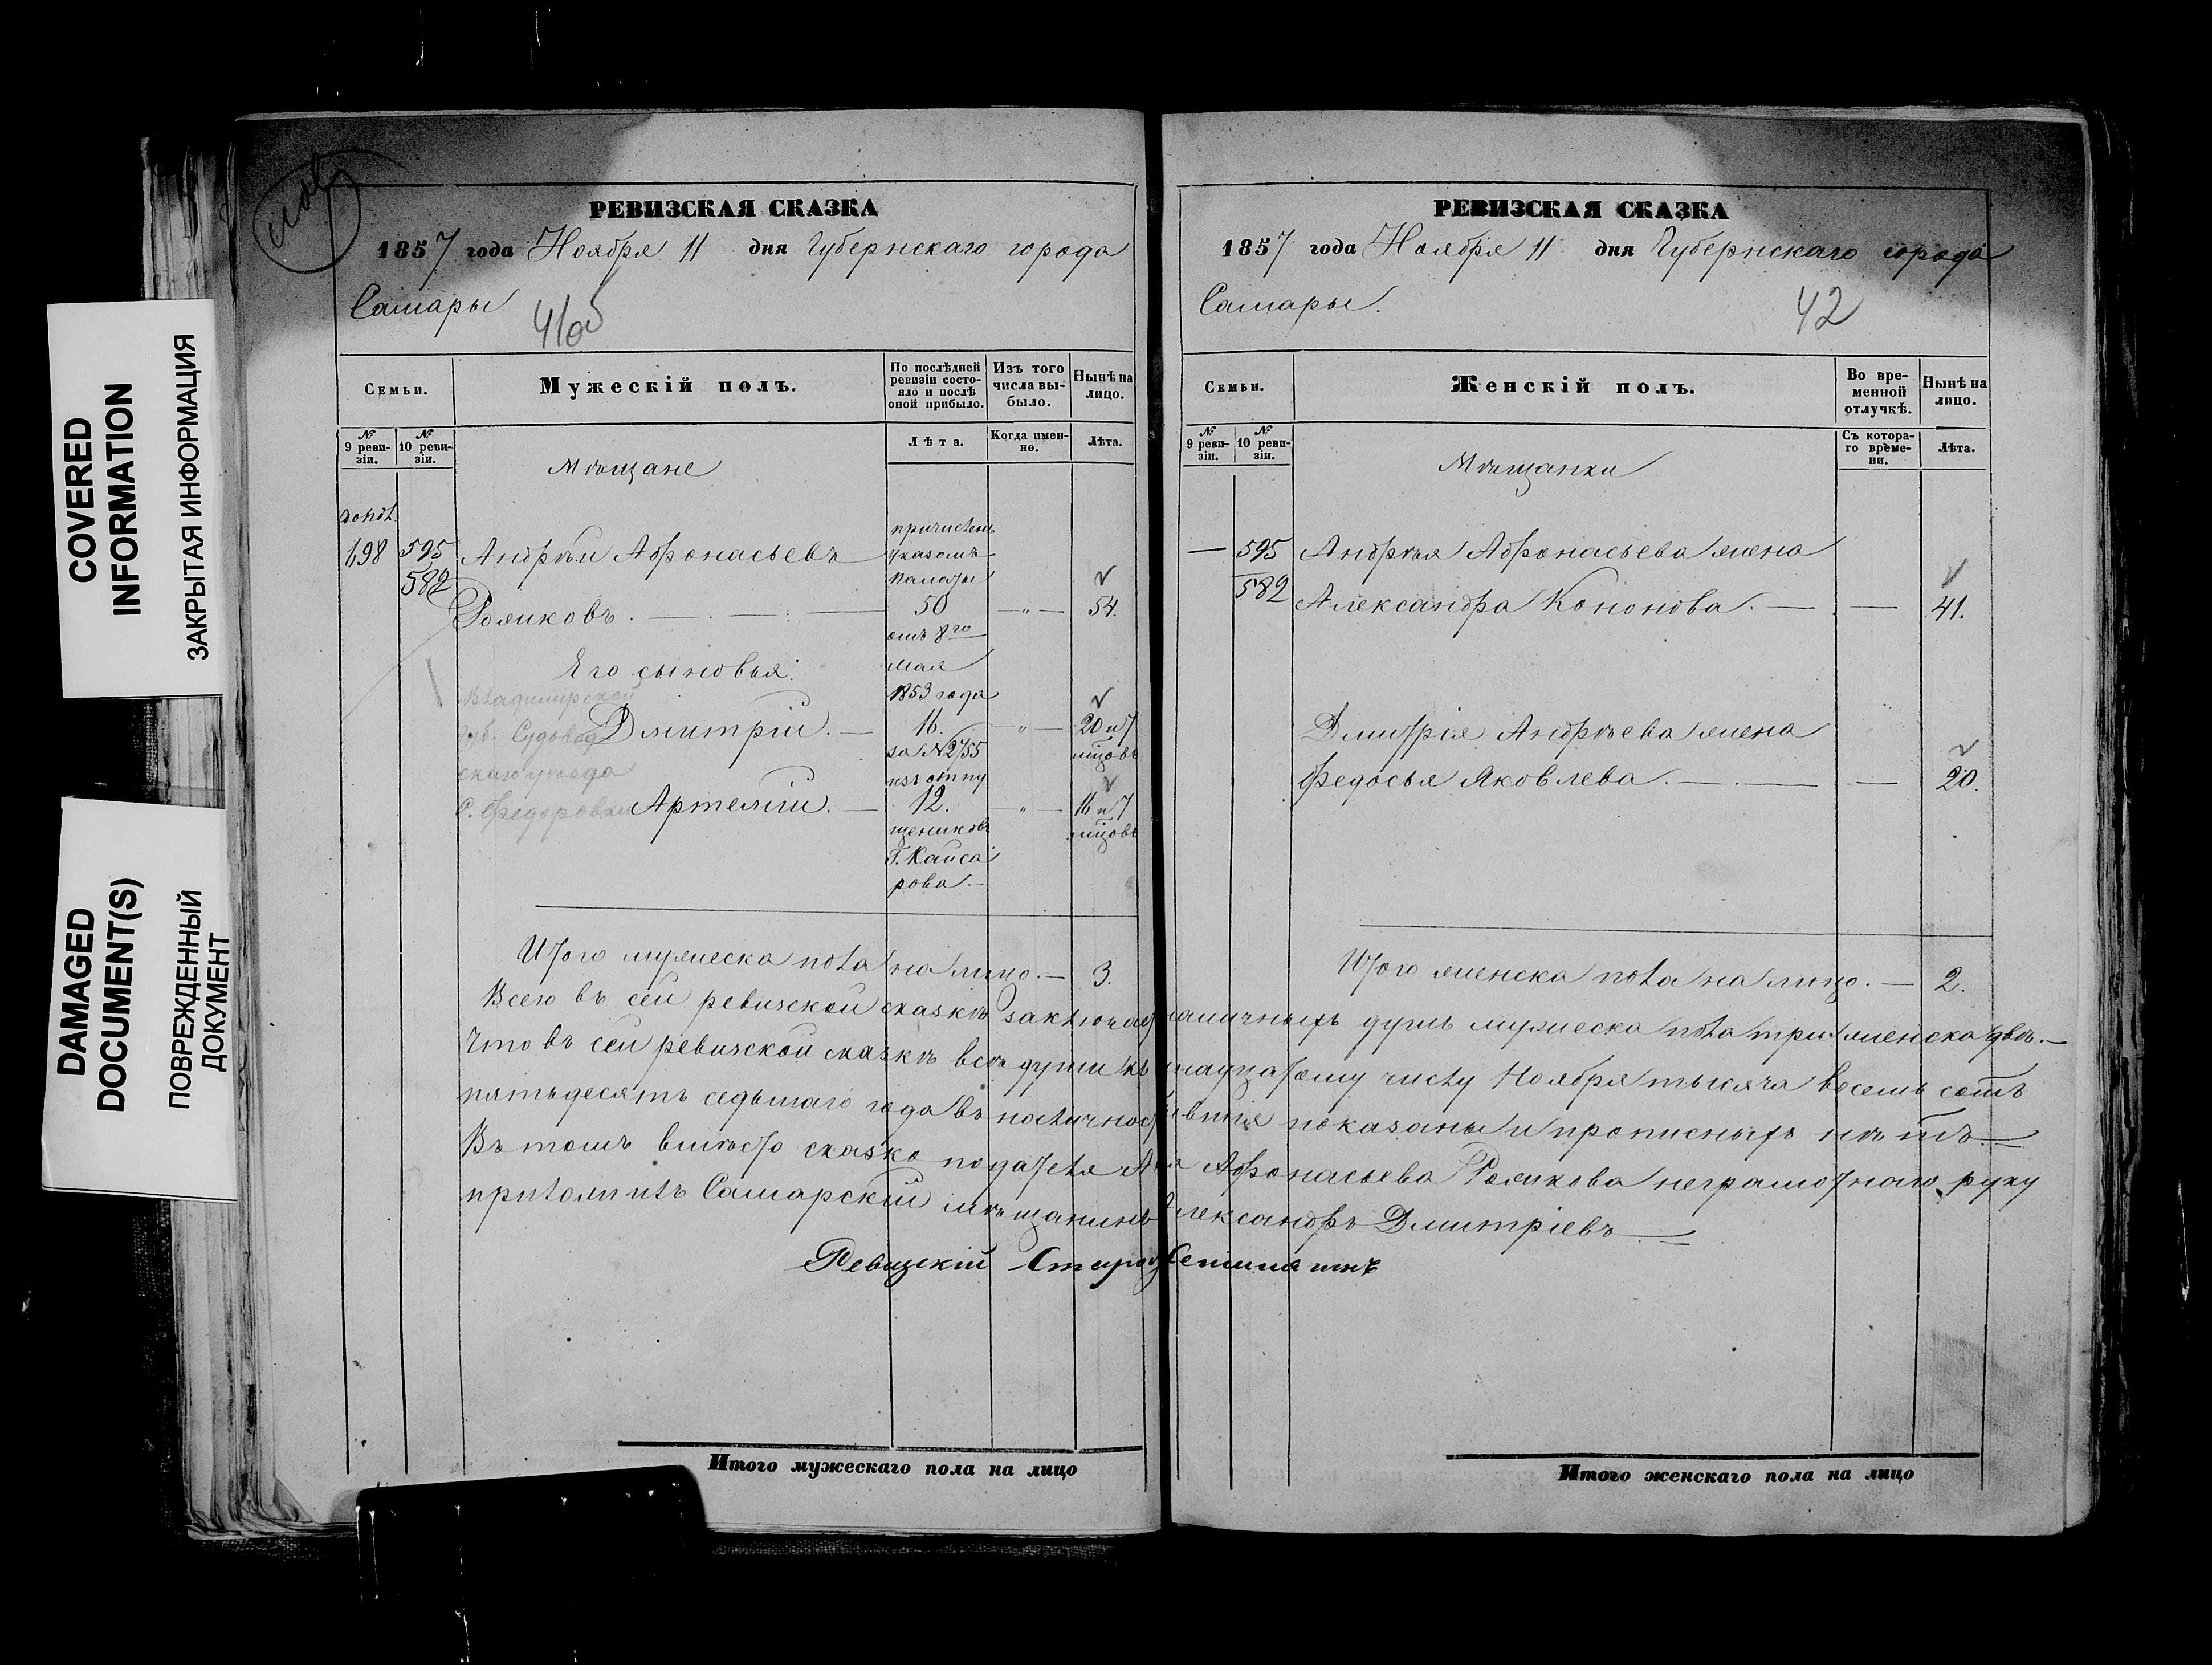 COVERED
INFORMATION
ЗАКРЫТАЯ ИНФОРМАЦИЯ
DAMAGED
DOCUMENT(S)
ПОВРЕЖДЕННЫЙ
ДОКУМЕНТ
РЕВИЗСКАЯ СКАЗКА
1857 года Ноября 11 дня Губернскаго города
Самары
41об
Семьи.
Мужескій полъ.
По послѣдней ревизіи состояло и послѣ оной прибыло.
Изъ того числа выбыло.
Нынѣ на лицо.
№ 9 ревизіи.
№ 10 ревизіи.
Мѣщане
Лѣта.
Когда именно.
Лѣта.
допол.
698 595 Андрей Афонасьевъ
582
Рожковъ. 50 " 54.
причислен указомъ палаты
отъ 8го мая 1853 года
за №2755 изъ отпущениковъ Г. Кайсарова.
Его сыновья:
Владимирской
губ. Судогодскаго уѣзда
Дмитрій. 16. " 20 и 7 мѣцовъ
Артемій. 12. " 16 и 7 мѣцовъ
Итого мужеска пола на лицо. 3.
РЕВИЗСКАЯ СКАЗКА
1857 года Ноября 11 дня Губернскаго города
Самары.
42
Семьи.
Женскій полъ.
Во временной отлучкѣ.
Нынѣ на лицо.
№ 9 ревизіи.
№ 10 ревизіи.
Мѣщанки
Съ котораго времени.
Лѣта.
— 595 Андрея Афонасьева жена
582 Александра Кононова. — — 41.
Дмитрія Андреева жена
Федосья Яковлева. — — 20.
Итого женска пола на лицо. — 2.
Всего въ сей ревизской сказкѣ заключае наличныхъ душъ мужеска пола три женска двѣ.—
Что въ сей ревизской сказкѣ всѣ души къ надцатому числу Ноября тысяча восемь сотъ
пятьдесятъ седьмаго года въ наличнос бывшіе показаны и прописныхъ нѣтъ.—
Въ томъ вмѣсто сказко подателя Ан Афонасьева Рожкова неграмотнаго руку
приложилъ Самарскій мѣщанинъ Александръ Дмитріевъ
Ревизскій
Итого мужескаго пола на лицо
Итого женскаго пола на лицо